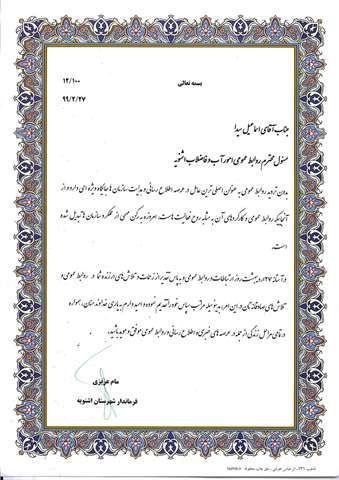 بسمه تعالی
۱۲/۱۰۰
۹۹/۲/۲۷
جناب آقای اسماعیل سیدا
مسئول محترم روابط عمومی امور آب و فاضلاب اشنویه
بدون تردید روابط عمومی به عنوان اصلی ترین عامل در عرصه اطلاع رسانی و هدایت سازمان ها جایگاه ویژه ای دارد و از
آنجاییکه روابط عمومی و کارکردهای آن به مثابه روح فعالیت هاست، امروزه به رکن مهمی از عملکرد سازمان ها تبدیل شده
است.
در آستانه ۲۷ اردیبهشت روز ارتباطات و روابط عمومی و به پاس تقدیر از زحمات و تلاش های ارزنده شما در روابط عمومی و
تلاش های صادقانه تان در این امر، بدینوسیله مراتب سپاس خود را تقدیم نموده و امید دارم به یاری خداوند منان، همواره
در تمامی مراحل زندگی از جمله در عرصه های خبری و اطلاع رسانی و روابط عمومی موفق و موید باشید.
مام عزیزی
فرماندار شهرستان اشنویه